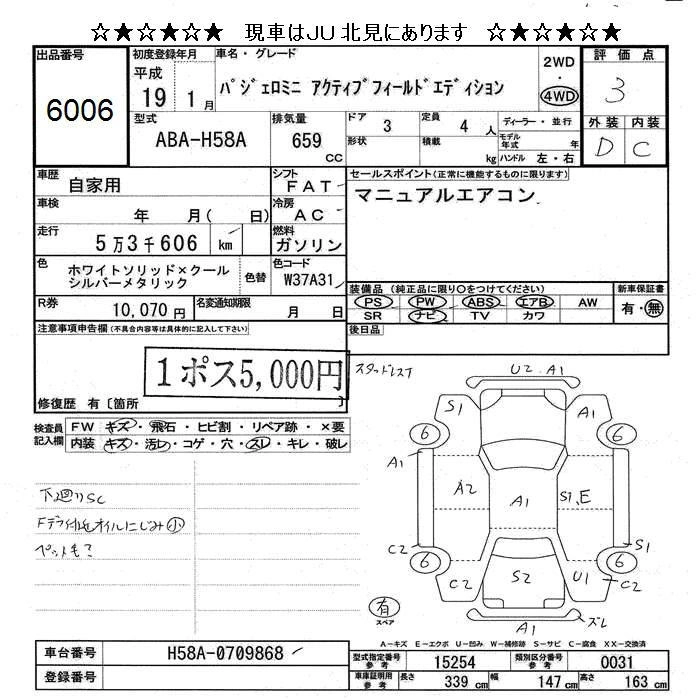 ☆★☆★☆★☆ 現車はJU北見にあります ☆★☆★☆★☆
出品番号 初度登録年月 車名・グレード 2WD・4WD 評価点
6006 平成19 1月 パジェロミニ アクティブフィールドエディション 3
型式 排気量 ドア 3 定員 4人 ディーラー・並行 外装 内装
ABA-H58A 659cc 形状 積載 kg モデル年式 年 ハンドル 左・右 D C
車歴 自家用 シフト FAT セールスポイント(正常に機能するものに限ります)
車検 年 月( 日) 冷房 AC マニュアルエアコン
走行 5万3千606 km 燃料 ガソリン
色 ホワイトソリッド×クール 色替 色コード W37A31
シルバーメタリック
装備品(純正品に限り○をつけてください) 新車保証書
R券 10,070円 名変通知期限 月 日 PS PW ABS エアB AW 有・無
SR ナビ TV カワ
注意事項申告欄(不具合内容等は具体的に記入して下さい) 後日品
1ポス5,000円
修復歴 有〔箇所 〕
スタッドレスT
検査員記入欄 FW キズ・飛石・ヒビ割・リペア跡・×要
内装 キズ・汚レ・コゲ・穴・スレ・キレ・破レ
U2 A1
S1 A1
6 6
A1
A2 A1 S1,E
C2 S1
6 6
C2 S2 U1 C2
有 スペア A1 ズレ
下廻りSC
Fデフ付近オイルにじみ小
ペット毛?
A-キズ E-エクボ U-凹み W-補修跡 S-サビ C-腐食 XX-交換済
車台番号 H58A-0709868 型式指定番号 参考 15254 類別区分番号 参考 0031
登録番号 車庫証明用 参考 長さ 339cm 幅 147cm 高さ 163cm